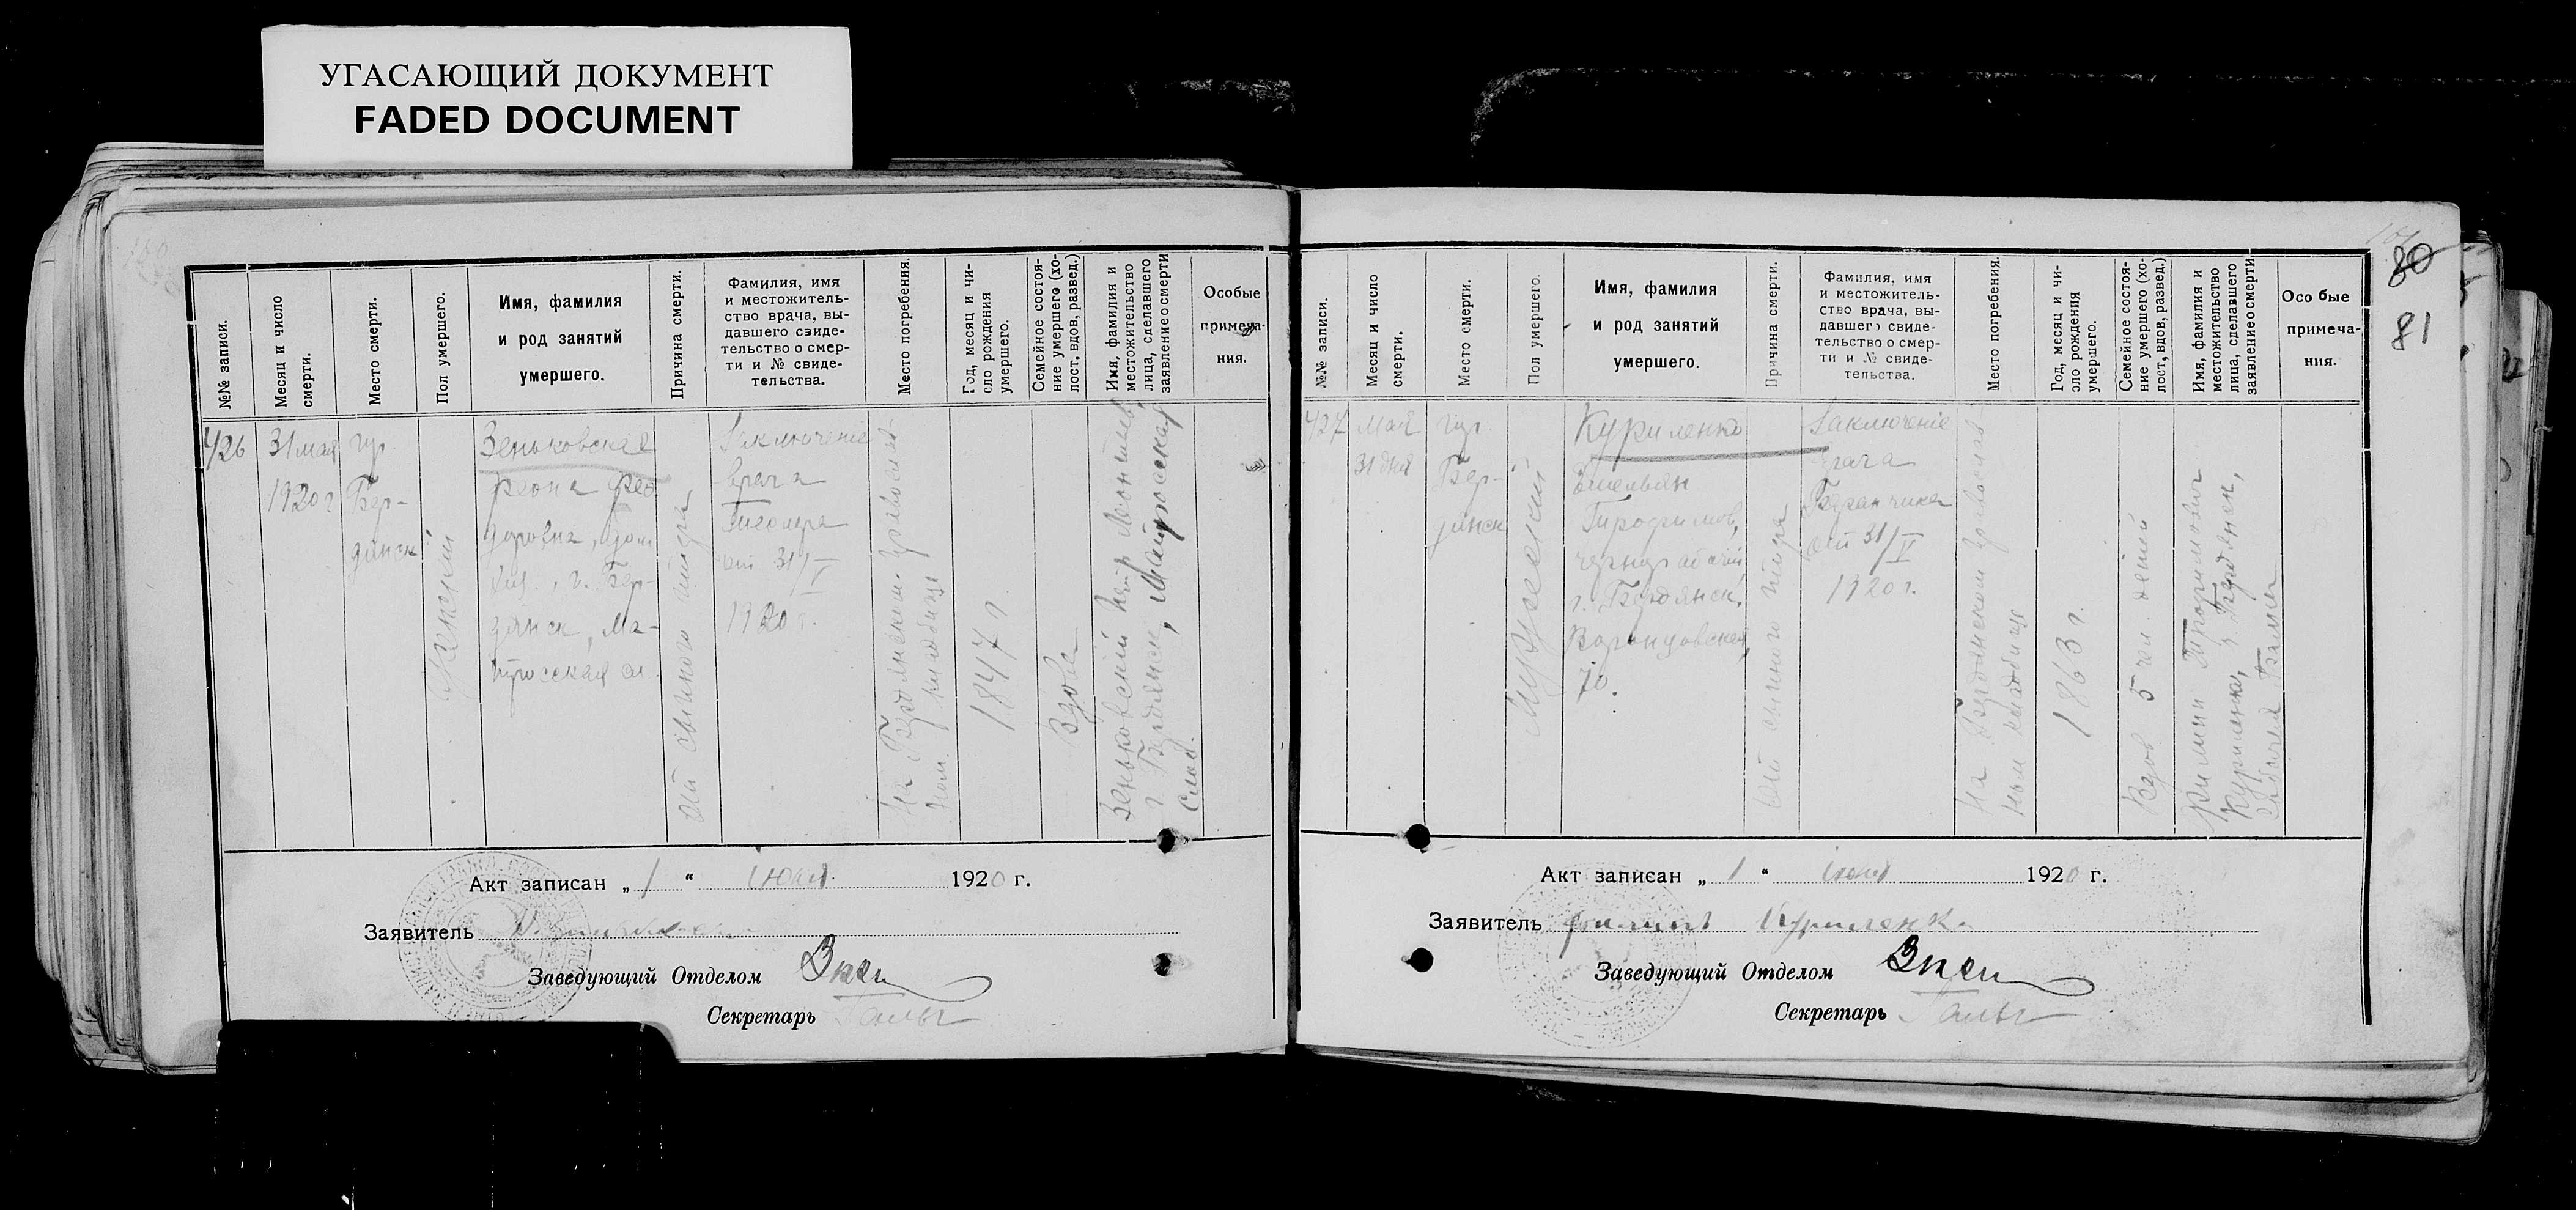 УГАСАЮЩИЙ ДОКУМЕНТ
FADED DOCUMENT
№№ записи.
Месяц и число
смерти.
Место смерти.
Пол умершего.
Имя, фамилия
и род занятий
умершего.
Причина смерти.
Фамилия, имя
и местожитель-
ство врача, вы-
давшего свиде-
тельство о смер-
ти и № свиде-
тельства.
Место погребения.
Год, месяц и чи-
сло рождения
умершего.
Семейное состоя-
ние умершего (хо-
лост, вдов, развед.)
Имя, фамилия и
местожительство
лица, сделавшего
заявление о смерти
Особые
примеча-
ния.
426
31 мая
1920 г
гор.
Бер-
дянск
Женский
Зеньковская
Фео-
доровна, дом.
г. Бер-
дянск, Ма-
тросская сл.
От сыпного тифа
Заключение
врача
от 31/V
1920 г.
На Бердянском
кладбище
1847 г.
Вдова
Зеньковский Петр
г. Бердянск, Матросская
Слоб.
Акт записан „ 1 “ июня 1920 г.
Заявитель
Заведующий Отделом
Секретарь
80
81
№№ записи.
Месяц и число
смерти.
Место смерти.
Пол умершего.
Имя, фамилия
и род занятий
умершего.
Причина смерти.
Фамилия, имя
и местожитель-
ство врача, вы-
давшего свиде-
тельство о смер-
ти и № свиде-
тельства.
Место погребения.
Год, месяц и чи-
сло рождения
умершего.
Семейное состоя-
ние умершего (хо-
лост, вдов, развед.)
Имя, фамилия и
местожительство
лица, сделавшего
заявление о смерти
Особые
примеча-
ния.
427
Мая
31 дня
гор.
Бер-
дянск
Мужской
Куриленко
Трофимов,
чернорабочий
г. Бердянск,
Воронцовская,
70.
От сыпного тифа
Заключеніе
врача
от 31/V
1920 г.
На Бердянском
кладбище
1863 г.
Вдов 5 чел. детей
Трофимович
Куриленко, г. Бердянск,
Акт записан „ 1 “ июня 1920 г.
Заявитель Филипп Куриленко
Заведующий Отделом
Секретарь